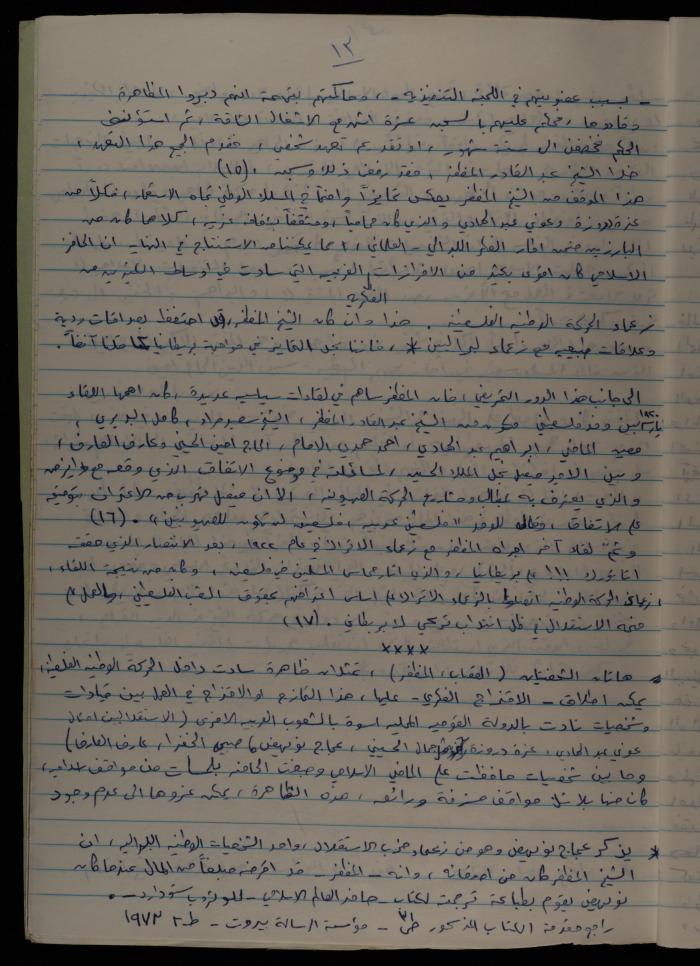 ١٣
- بسبب عضويتهم في اللجنة التنفيذية - ، وحاكمتهم بتهمة انهم دبروا المظاهرة
وقادوها ، فحكم عليهم بالسجن عشرة اشهر مع الاشغال الشاقة ، ثم استؤنف
الحكم فخفض الى ستة شهور ، او تقديم تعهد شخصي ، فقدم الجميع هذا التعهد ،
عدا الشيخ عبد القادر المظفر ، فقد رفض ذلك وسجن . (١٥)
هذا الموقف من الشيخ المظفر يعكس تمايزاً واضحاً في السلك الوطني تجاه الاستعمار ، فكلاً من
عزة دروزة وعوني عبد الهادي والذي كان محامياً ، ومثقفاً بثقافة غربية ، كلاهما كان من
البارزين ضمن اطار الفكر الليبرالي - العلماني ، مما يمكننا من الاستنتاج في النهاية ان الحافز
الاسلامي كان اقوى بكثير من الافرازات الغربية التي سادت في اوساط الكثيرين من
الفكرية
زعماء الحركة الوطنية الفلسطينية . هذا وان كان الشيخ المظفر قد احتفظ بصداقات ودية
وعلاقات طبيعية مع زعماء ليبراليين * ، فاننا نجد التمايز في مواجهة بريطانيا كما قلنا آنفاً .
الى جانب هذا الدور التحريضي ، فان المظفر ساهم في لقاءات سياسية عديدة ، كان اهمها اللقاء
بين وفد فلسطيني مكون من الشيخ عبد القادر المظفر ، الشيخ سعيد مراد ، كامل البديري ،
معين الماضي ، ابراهيم عبد الهادي ، احمد حمدي الامام ، الحاج امين الحسيني وعارف العارف ،
وبين الامير فيصل نجل الملك الحسين ، لمساءلته في موضوع الاتفاق الذي وقعه مع وايزمن
والذي يعترف به بآمال ومشاريع الحركة الصهيونية ، الا ان فيصل تهرب من الاعتراف بتوقيعه
على الاتفاق ، وقال للوفد "فلسطين عربية ، فلسطين لن تكون للصهيونيين" . (١٦)
وثمّ لقاء آخر اجراه المظفر مع زعماء الاتراك في عام ١٩٢٢ ، بعد الانتصار الذي حققه
اتاتورك !!! على بريطانيا ، والذي اثار حماس المسلمين في فلسطين ، وكان من نتيجة اللقاء ،
زعماء الحركة الوطنية اتصلوا بالزعماء الاتراك على اساس اعترافهم بحقوق الشعب الفلسطيني ، والعمل على
منحه الاستقلال في ظل انتداب تركي لا بريطاني . (١٧)
××××
هاتان الشخصيتان (القصاب ، المظفر) ، تمثلان ظاهرة سادت داخل الحركة الوطنية الفلسطينية
يمكن اطلاق - الامتزاج الفكري - عليها ، هذا التمازج او الامتزاج في العمل بين قيادات
وشخصيات نادت بالدولة القومية المحلية اسوة بالشعوب الغربية الاخرى (الاستقلاليين امثال
عوني عبد الهادي ، عزة دروزة، جمال الحسيني ، عجاج نويهض ، صبحي الخضرا ، عارف العارف)
وما بين شخصيات حافظت على الماضي الاسلامي وصبغت الحاضر بلمسات من مواقف
كان منها بلا شك مواقف مشرفة ورائعة ، هذه الظاهرة ، يمكن عزوها الى عدم وجود
* يذكر عجاج نويهض وهو من زعماء حزب الاستقلال ، واحد الشخصيات الوطنية الليبرالية ، ان
الشيخ المظفر كان من اصدقائه ، وانه - المظفر - قد اقرضه مبلغاً من المال عندما كان
نويهض يقوم بطباعة ترجمة لكتاب - حاضر العالم الاسلامي - للوثروب ستودارد - .
راجع مقدمة الكتاب المذكور - مؤسسة الرسالة بيروت - ط ٢ ١٩٧٣